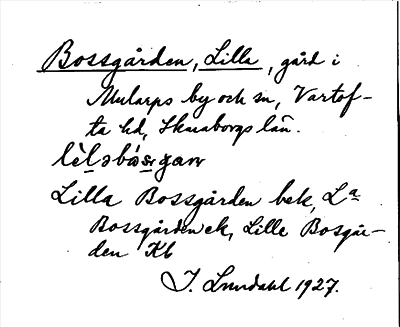 Bossgården, Lilla, gård i
Mularps by och sn, Vartof-
ta hd, Skaraborgs län.
lèl̯əbás̯gaṇ
Lilla Bossgården bek, Lª
Bossgården ek, Lille Bosgår-
den Kb
J. Lundahl 1927.